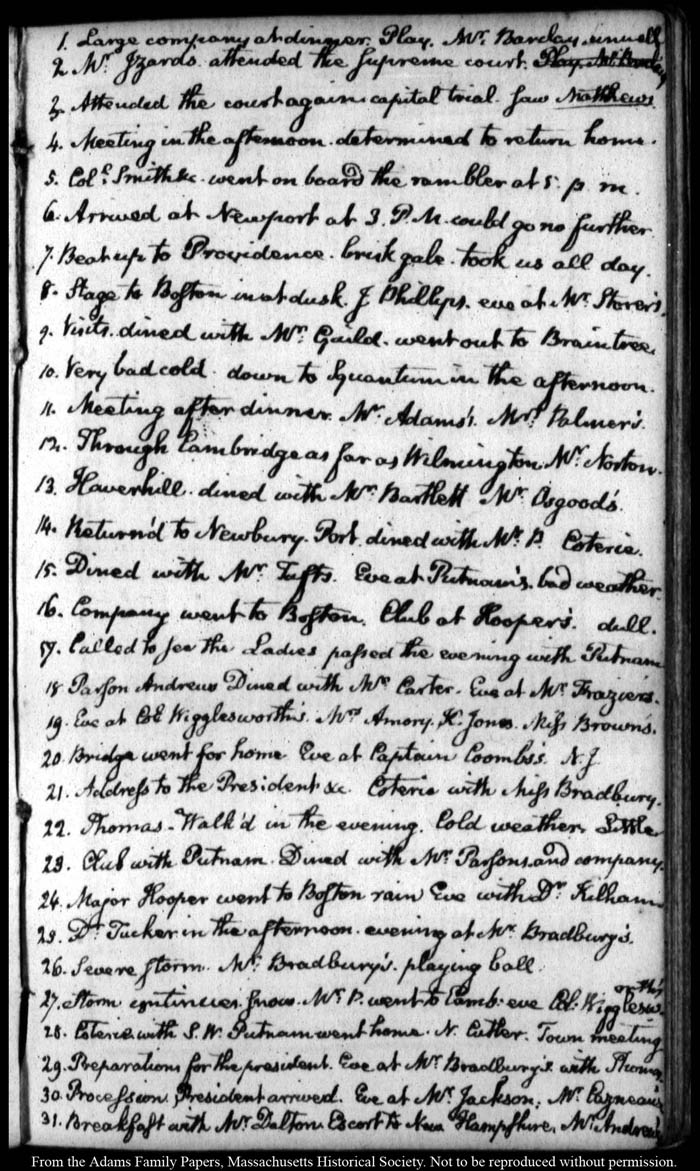 1. Large company at dinner. Play. Mr. Barclay unwell
2 Mr Izards. attended the supreme court. Play. Mr Barclay
3. Attended the court again. capital trial. saw Matthews.
4. Meeting in the afternoon. determined to return home.
5. Colo. Smith &c. went on board the rambler at 5. p. m.
6. Arrived at Newport at 3. P. M. could go no further
7. Beat up to Providence. brisk gale. took us all day.
8. Stage to Boston in at dusk. J Phillips. eve at Mr. Storer's.
9. Visits. dined with Mr. Guild. went out to Braintree.
10. Very bad cold. down to Squantum in the afternoon.
11. Meeting after dinner. Mr. Adams's. Mrs. Palmer's.
12. Through Cambridge as far as Wilmington. Mr. Norton.
13. Haverhill. dined with Mr. Bartlett Mr. Osgood's.
14. Return'd to Newbury-Port. dined with Mr. P. Coterie.
15. Dined with Mr. Tufts. Eve at Putnam's. bad weather.
16. Company went to Boston. Club at Hooper's. dull.
17. Called to see the Ladies passed the evening with Putnam
18 Parson Andrews Dined with Mr. Carter. Eve at Mr. Frazier's.
19. Eve at Col. Wigglesworth's. Mrs Amory. H. Jones. Miss Brown's.
20. Bridge went for home Eve at Captain Coombs's. N. J.
21. Address to the President &c. Coterie with Miss Bradbury.
22. Thomas. Walk'd in the evening. Cold weather. Little
23. Club with Putnam. Dined with Mr. Parsons. and company.
24. Major Hooper went to Boston rain Eve with Dr. Kilham
25. Dr. Tucker in the afternoon. evening at Mr. Bradbury's.
26. Severe storm. Mr. Bradbury's. playing ball.
27. Storm continues. snow. Mr. P. went to Camb: eve Col. Wigglesw-orth's
28. Coterie with S. W. Putnam went home. N. Cutler. Town meeting
29. Preparations for the president. Eve at Mr. Bradbury's. with Thomas
30. Procession. President arrived. Eve at Mr. Jackson. Mr. Cazneau's
31. Breakfast with Mr. Dalton. Escort to New Hampshire. Mr. Andrews
From the Adams Family Papers, Massachusetts Historical Society. Not to be reproduced without permission.